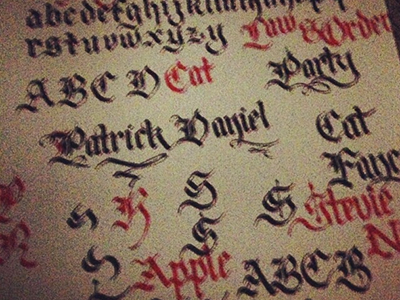 abcdefghijklmnopqr
rstuvwxyzy Law & Order
ABC D Cat Party
Patrick Daniel Cat
Fanc
S K S S Stevie
S R S N
Apple ABCB